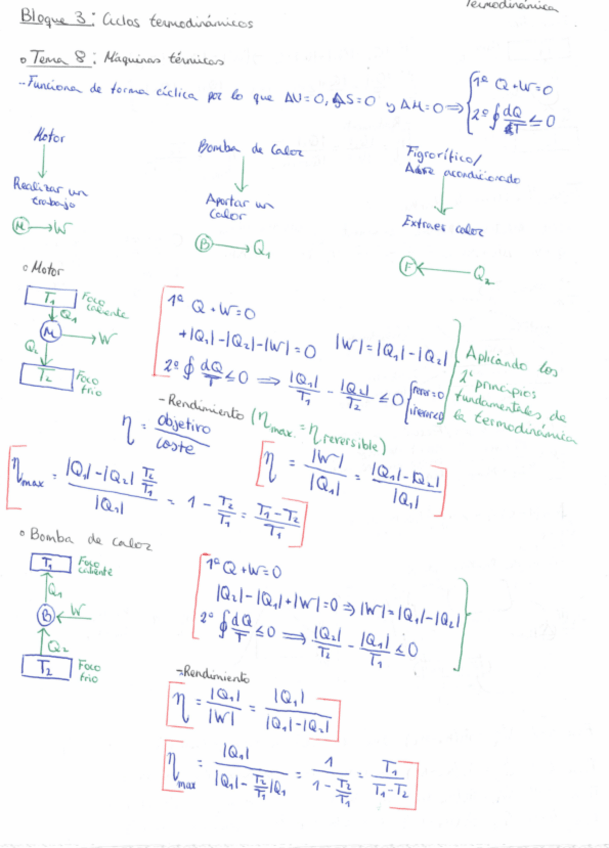 Termodinámica
Bloque 3: Ciclos termodinámicos
o Tema 8: Máquinas térmicas
-Funciona de forma cíclica por lo que ΔU=0, ΔS=0 y ΔH=0 ⇒ { 1º Q+W=0
2º ∮ dQ/T ≤ 0
Motor
Realizar un trabajo
M → W
Bomba de calor
Aportar un calor
B → Q₁
Figrorífico/
Aire acondicionado
Extraer calor
F ← Q₂
o Motor
T₁ Foco caliente
Q₁
M → W
Q₂
T₂ Foco frio
1º Q+W=0
+|Q₁|-|Q₂|-|W|=0 |W|=|Q₁|-|Q₂|
2º ∮ dQ/T ≤ 0 ⇒ |Q₁|/T₁ - |Q₂|/T₂ ≤ 0 { rever=0
irever<0
Aplicando los
2 principios
fundamentales de
la termodinámica
-Rendimiento (η max. = η reversible)
η = objetivo/coste
η = |W|/|Q₁| = |Q₁|-|Q₂|/|Q₁|
η max = |Q₁|-|Q₁| T₂/T₁ / |Q₁| = 1 - T₂/T₁ = T₁-T₂/T₁
o Bomba de calor
T₁ Foco caliente
Q₁
B ← W
Q₂
T₂ Foco frio
1º Q+W=0
|Q₂|-|Q₁|+|W|=0 ⇒ |W|=|Q₁|-|Q₂|
2º ∮ dQ/T ≤ 0 ⇒ |Q₂|/T₂ - |Q₁|/T₁ ≤ 0
-Rendimiento
η = |Q₁|/|W| = |Q₁|/|Q₁|-|Q₂|
η max = |Q₁| / |Q₁|- T₂/T₁ |Q₁ = 1 / 1 - T₂/T₁ = T₁/T₁-T₂